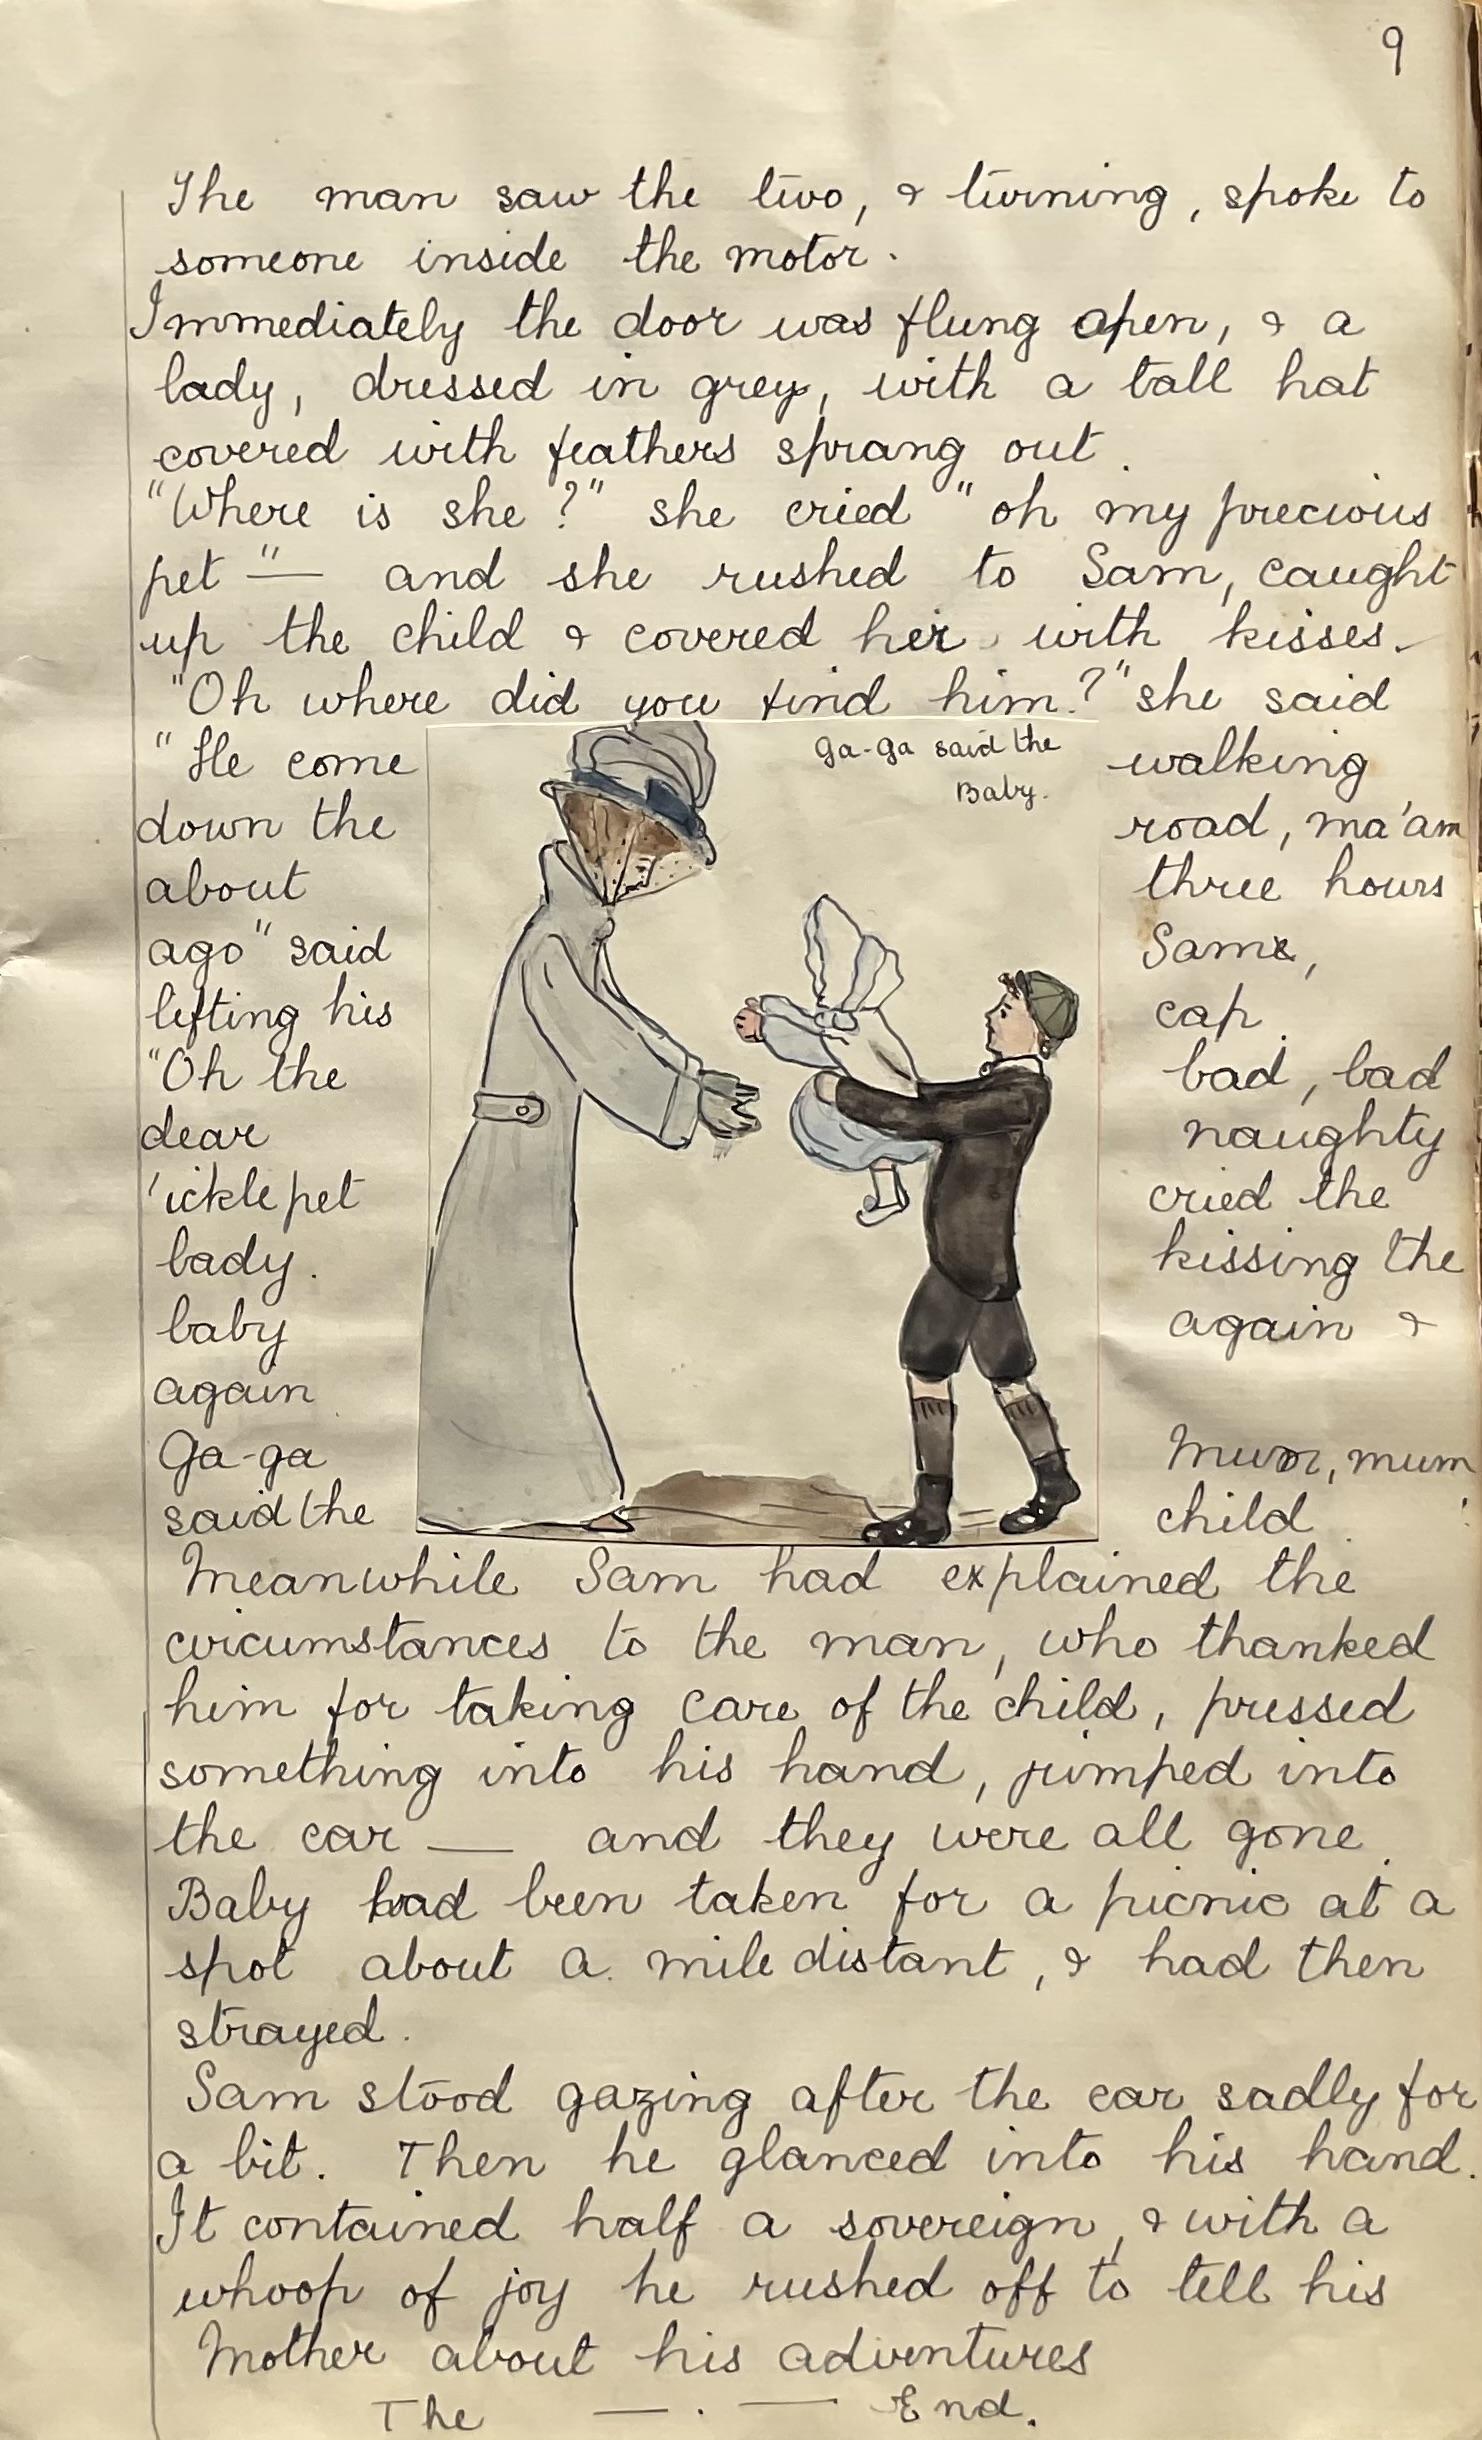 9
The man saw the two, & turning, spoke to
someone inside the motor.
Immediately the door was flung open, & a
lady, dressed in grey, with a tall hat
covered with feathers sprang out.
"Where is she?" she cried "oh my precious
pet" — and she rushed to Sam, caught
up the child & covered her with kisses.
"Oh where did you find him?" she said
"He come walking
down the road, ma'am
about three hours
ago" said Sam,
lifting his cap.
"Oh the bad, bad
dear naughty
'ickle pet cried the
lady. kissing the
baby again &
again
Ga-ga Mum, mum
said the child.
Ga-ga said the
Baby.
Meanwhile Sam had explained the
circumstances to the man, who thanked
him for taking care of the child, pressed
something into his hand, jumped into
the car — and they were all gone.
Baby had been taken for a picnic at a
spot about a mile distant, & had then
strayed.
Sam stood gazing after the car sadly for
a bit. Then he glanced into his hand.
It contained half a sovereign, & with a
whoop of joy he rushed off to tell his
Mother about his adventures
The — . — End.